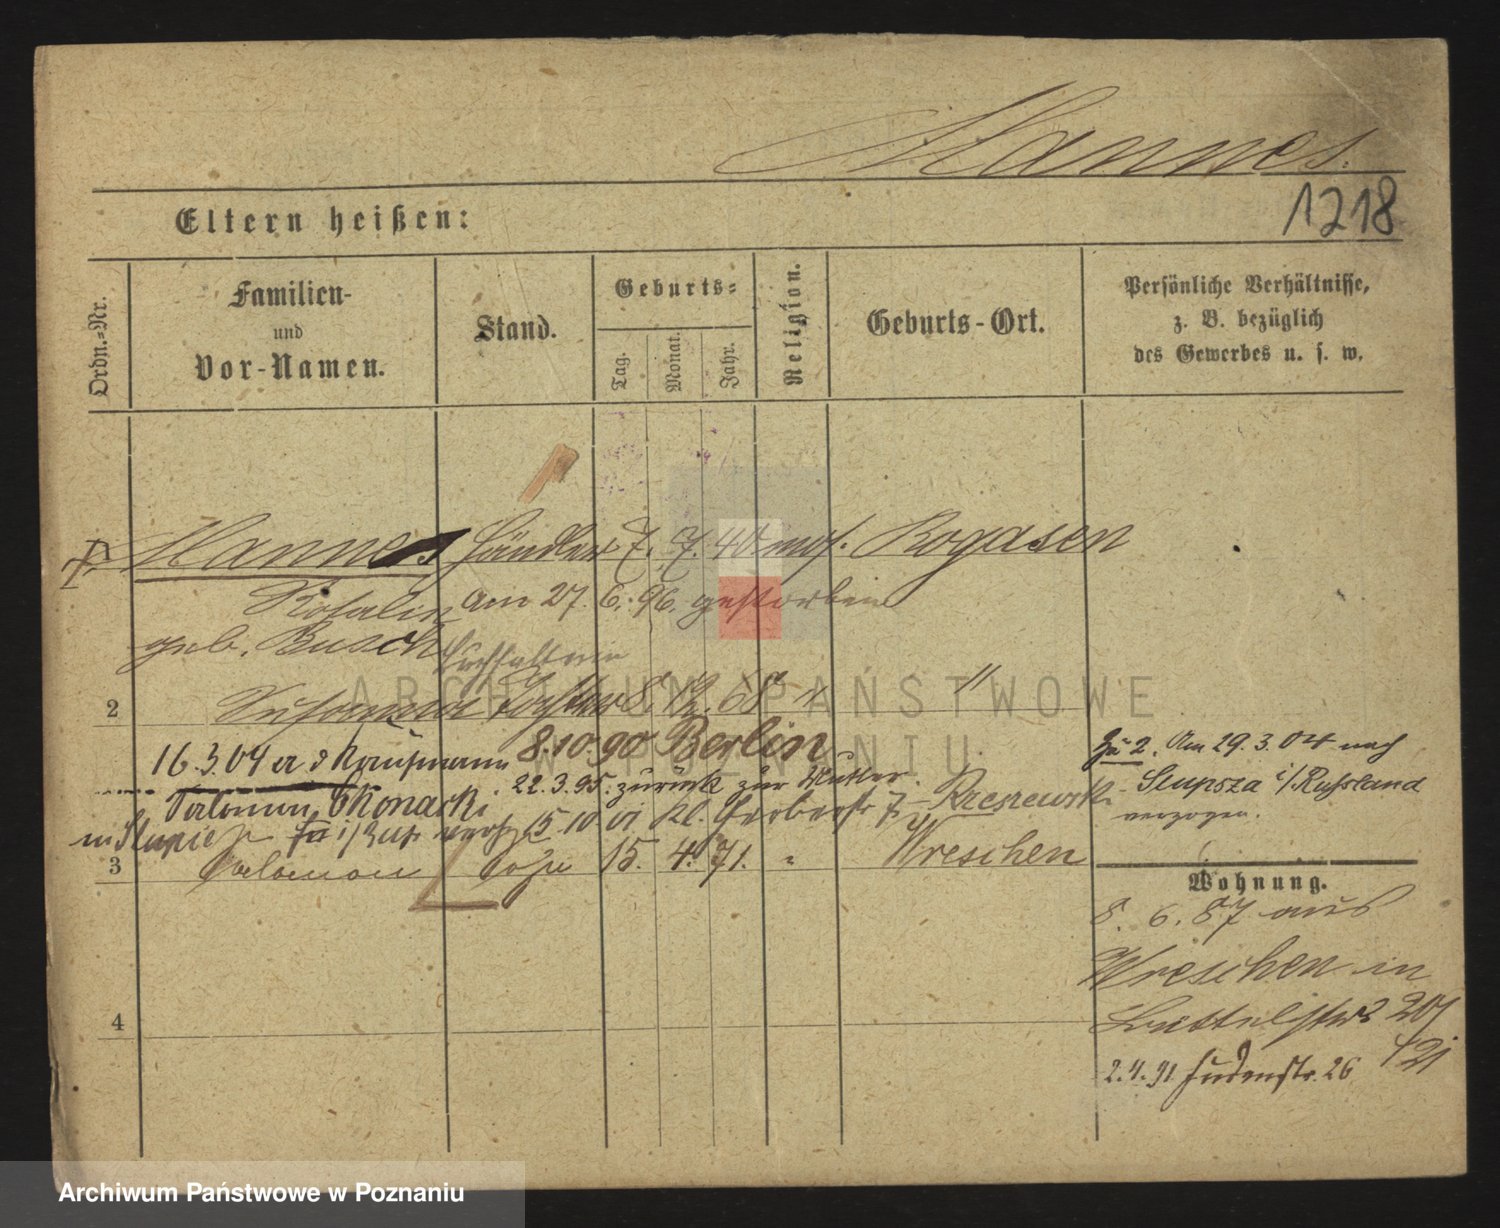 Mannes.
1218
Eltern heißen:
Ordn.-Nr.
Familien-
und
Vor-Namen.
Stand.
Geburts-
Tag.
Monat.
Jahr.
Religion.
Geburts-Ort.
Persönliche Verhältnisse,
z. B. bezüglich
des Gewerbes u. s. w.
Mannes Händler 7. 7. 40 mos. Rogasen
Rosalie am 27. 6. 96. gestorben
geb. Busch
Buchhalterin
2 Tochter 8. 12. 68 " "
16.3.04 Kaufmann 8.10.90 Berlin
Salomon Skonacki 22.3.95. zurück zur Mutter.
in Slupie 15 10 01 Kl. Gerberstr 7
3 Salomon Sohn 15. 4. 71. " Wreschen
Zu 2. Am 29.3.04 nach
Slupsza i/Russland
verzogen.
Wohnung.
8. 6. 87 aus
Wreschen in
Büttelstr 20/
21
2.4.91 Judenstr. 26
4
ARCHIWUM PAŃSTWOWE
W POZNANIU
Archiwum Państwowe w Poznaniu